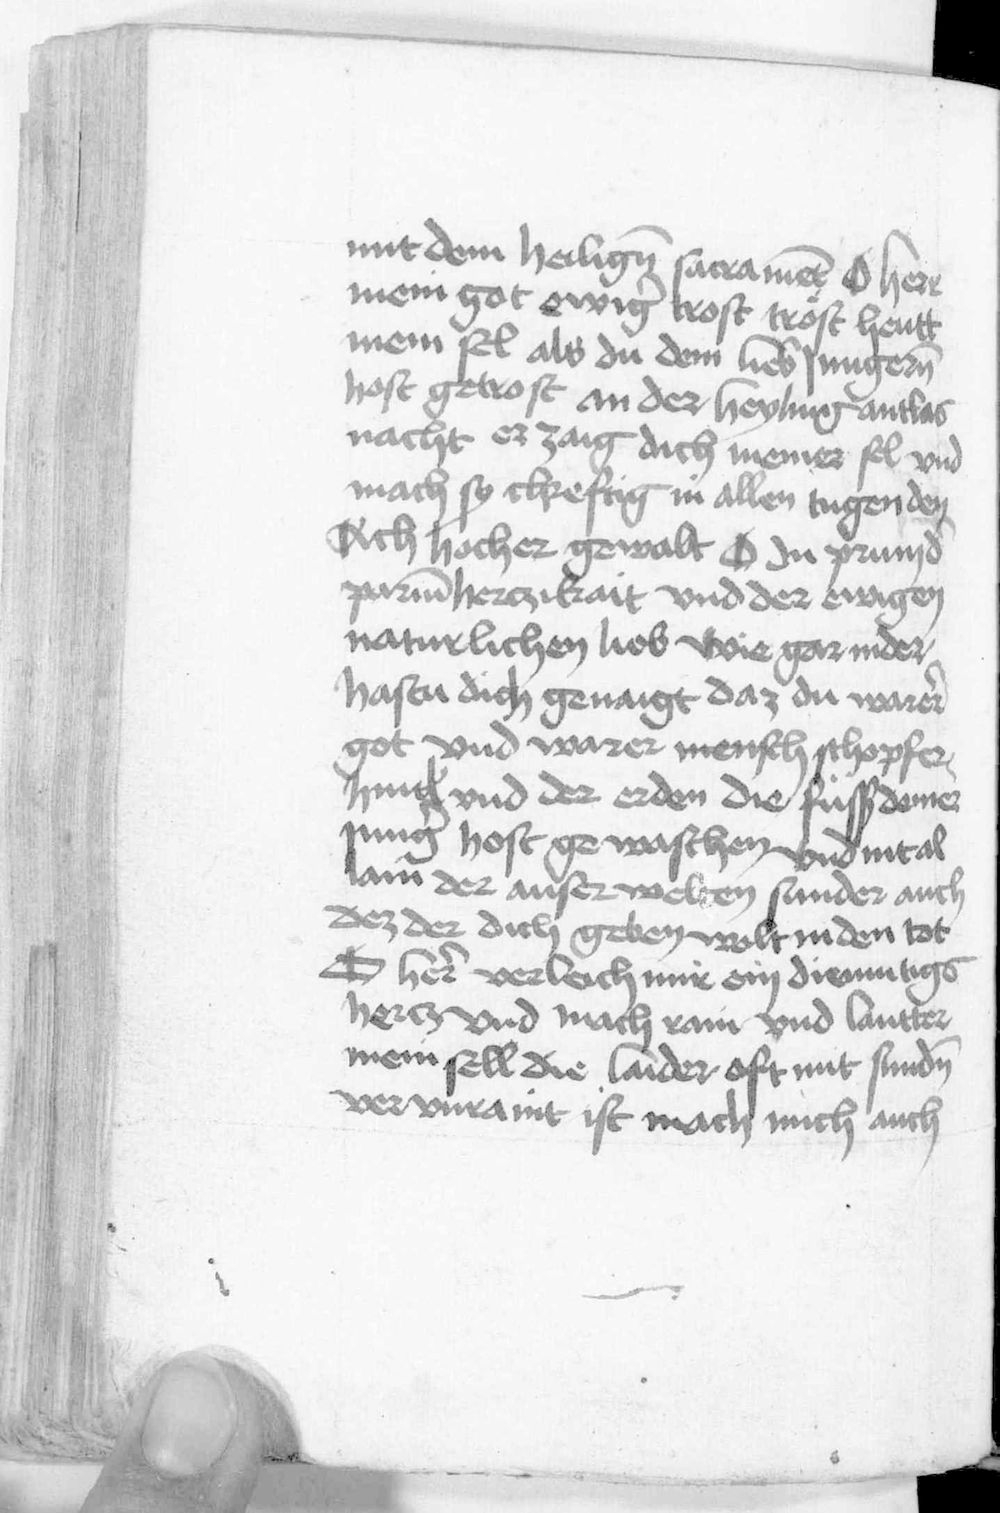 mit dem heilign̄ sacramēt O herr
mein got ewigͤr trost tröst heutt
mein sel als du dem lieb̄ Jungern̄
host getrost an der heyling antlas
nacht er zaig dich meiner sel vnd
mach sy chreftig in allen tugenden
Ach hocher gewalt O In prunnd̄
parm̄herczikait vnd der ewigen
naturlichen lieb wie gar nider
hastu dich genaigt daz du warer̄
got vnd warer mensch schopfer
himls vnd der erden die füss deiner
Jungͤr host gewaschen vnd nit al
lain der auserwelten sunder auch
dez der dich geben wolt in den tot
O her̄ verleich mir ein diemutigs
hercz vnd mach rain vnd lautter
mein sell die laider oft mit sundn̄
vervnraint ist mach mich auch